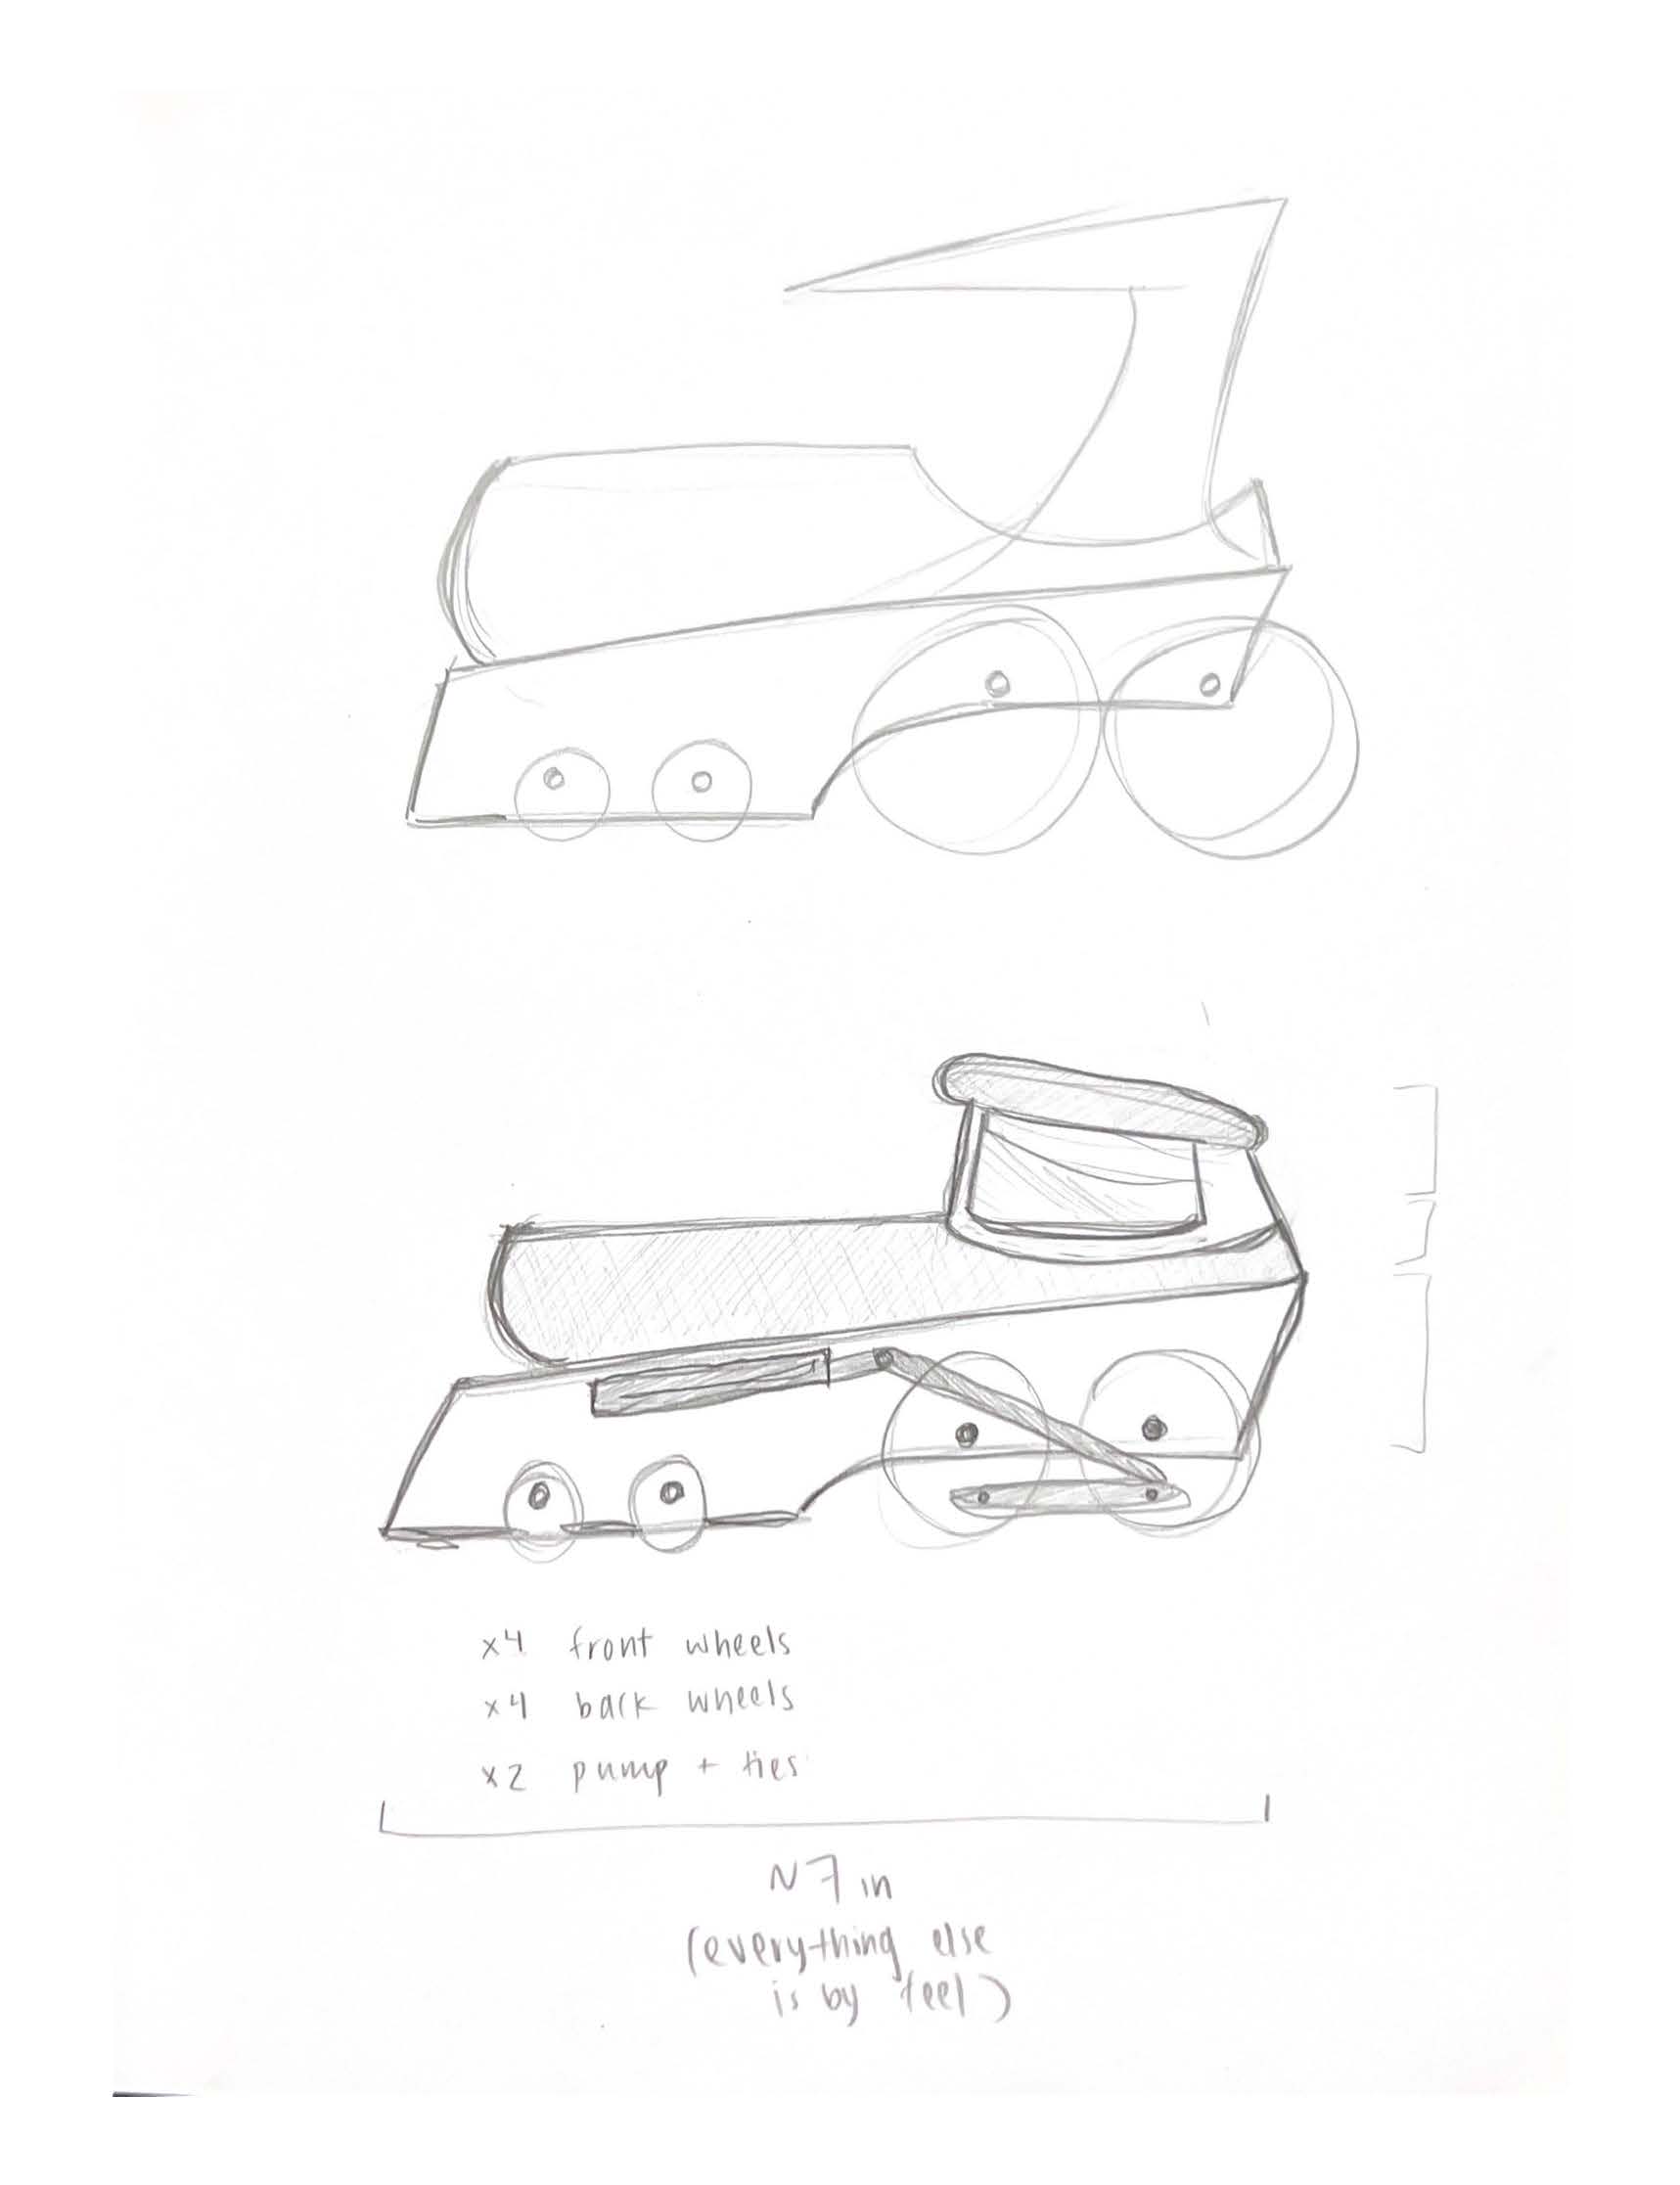 x4 front wheels
x4 back wheels
x2 pump + ties
~7 in
(everything else
is by feel)